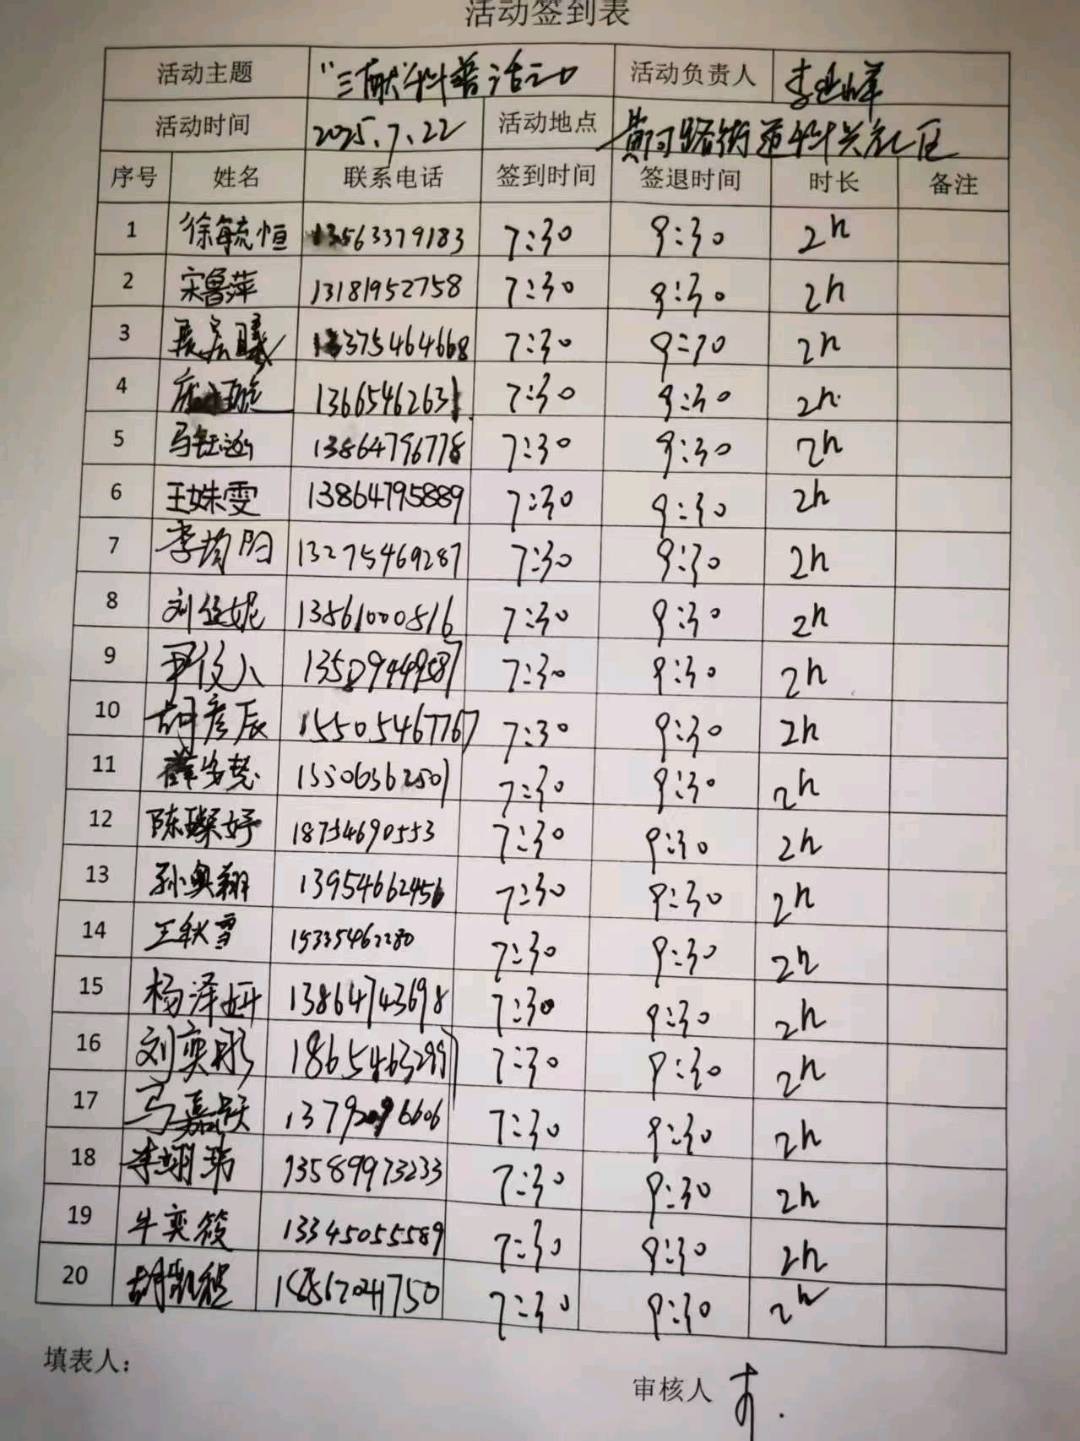 活动签到表
活动主题 "三献"科普活动 活动负责人
活动时间 2025.7.22 活动地点 黄河路街道科兴社区
序号 姓名 联系电话 签到时间 签退时间 时长 备注
1 徐毓恒 13563379183 7:30 9:30 2h
2 宋鲁萍 13181952758 7:30 9:30 2h
3 13375464668 7:30 9:30 2h
4 13665462631 7:30 9:30 2h
5 13864796778 7:30 9:30 2h
6 王姝雯 13864795889 7:30 9:30 2h
7 李均阳 13275469287 7:30 9:30 2h
8 13861000816 7:30 9:30 2h
9 7:30 9:30 2h
10 胡彦辰 15505467767 7:30 9:30 2h
11 7:30 9:30 2h
12 陈璨妤 18754690553 7:30 9:30 2h
13 孙奥翔 13954662456 7:30 9:30 2h
14 王秋雪 15335462280 7:30 9:30 2h
15 杨泽妍 13864743698 7:30 9:30 2h
16 刘奕彤 18654632997 7:30 9:30 2h
17 马嘉跃 7:30 9:30 2h
18 李翊玮 13589973233 7:30 9:30 2h
19 牛奕筱 13345055589 7:30 9:30 2h
20 胡凯程 7:30 9:30 2h
填表人：
审核人